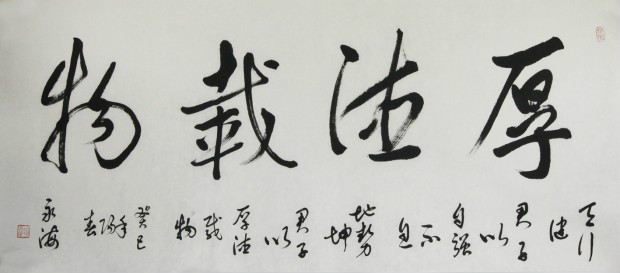 厚德載物
天行健君子以自强不息地势坤君子以厚德載物
癸巳年陽春
永海